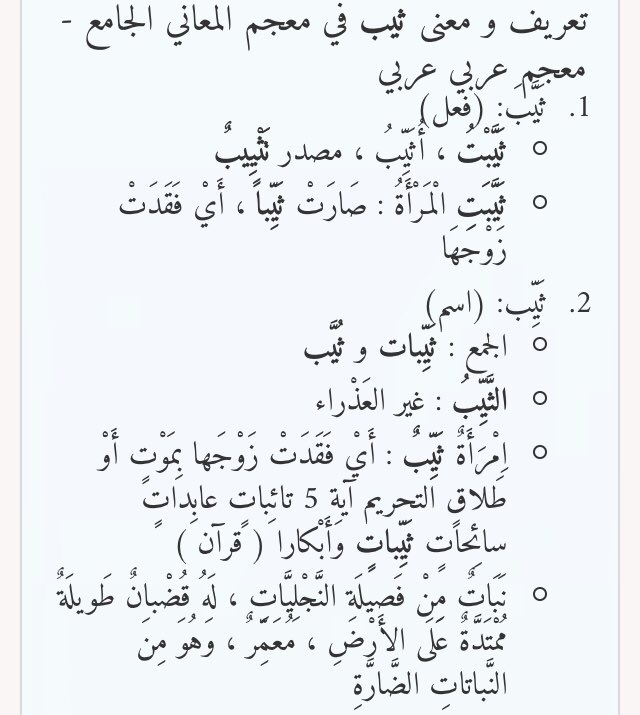 تعريف و معنى ثيب في معجم المعاني الجامع -
معجم عربي عربي
1. ثَيَّبَ: (فعل)
ثَيَّبْتُ ، أُثَيِّبُ ، مصدر تَثْيِيبٌ
ثَيَّبَتِ الْمَرْأَةُ : صَارَتْ ثَيِّباً ، أَيْ فَقَدَتْ
زَوْجَهَا
2. ثَيِّب: (اسم)
الجمع : ثَيِّبات و ثُيَّب
الثَّيِّبُ : غير العَذْراء
اِمْرَأَةٌ ثَيِّبٌ : أَيْ فَقَدَتْ زَوْجَها بِمَوْتٍ أَوْ
طَلاقٍ التحريم آية 5 تائِباتٍ عابِداتٍ
سائِحاتٍ ثَيِّباتٍ وَأَبْكارا ( قرآن )
نَبَاتٌ مِنْ فَصِيلَةِ النَّجْلِيَّاتِ ، لَهُ قُضْبانٌ طَويلَةٌ
مُمْتَدَّةٌ عَلَى الأَرْضِ ، مُعَمِّرٌ ، وَهُوَ مِنَ
النَّباتاتِ الضَّارَّةِ